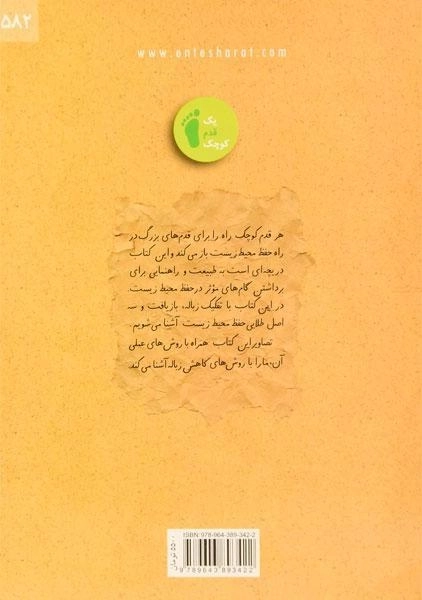 ۵۸۲
www.entesharat.com
یک
قدم
کوچک
هر قدم کوچک راه را برای قدم‌های بزرگ در
راه حفظ محیط زیست باز می‌کند و این کتاب
دریچه‌ای است به طبیعت و راهنمایی برای
برداشتن گام‌های مؤثر در حفظ محیط زیست.
در این کتاب با تفکیک زباله، بازیافت و سه
اصل طلایی حفظ محیط زیست آشنا می‌شویم.
تصاویر این کتاب همراه با روش‌های عملی
آن، ما را با روش‌های کاهش زباله آشنا می‌کند
ISBN: 978-964-389-342-2
9789643893422
۵۵۰۰ تومان